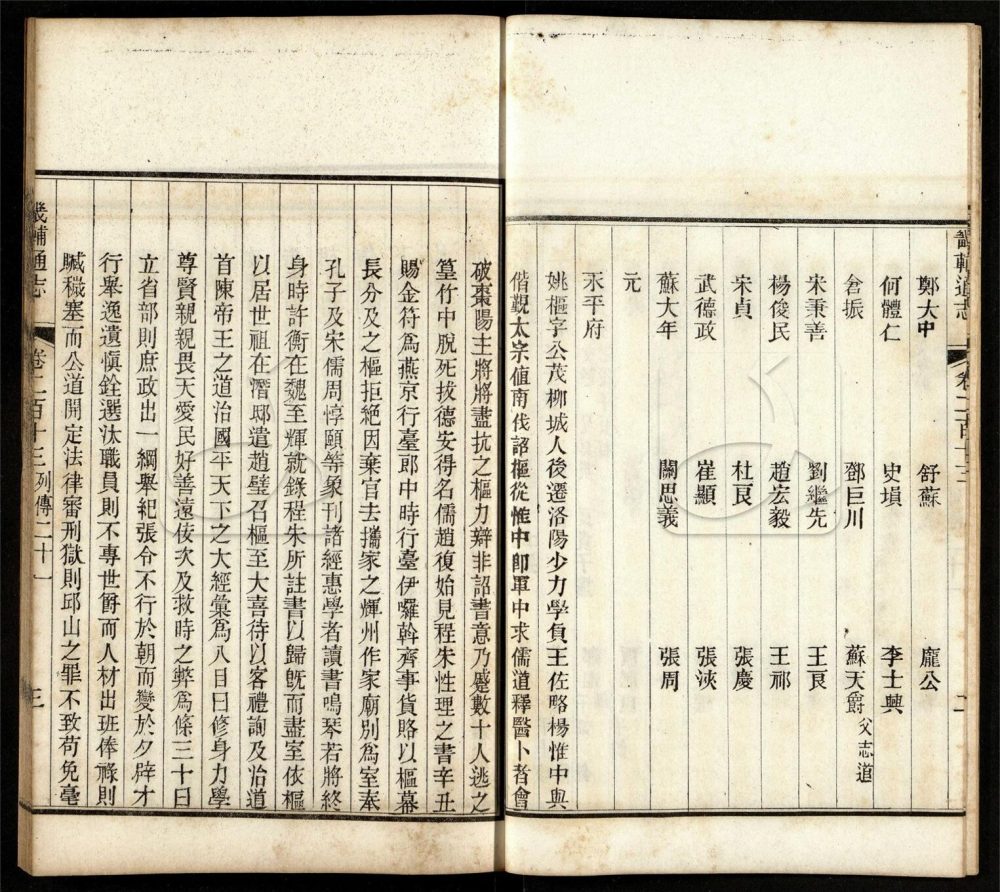 畿輔通志 卷二百十三 二
鄭大中 舒蘇 龐公
何體仁 史塤 李士興
倉振 鄧巨川 蘇天爵父志道
宋秉善 劉繼先 王良
楊俊民 趙宏毅 王祁
宋貞 杜良 張慶
武德政 崔顯 張浹
蘇大年 關思義 張周
元
永平府
姚樞字公茂柳城人後遷洛陽少力學負王佐略楊惟中與
偕觀太宗值南伐詔樞從惟中卽軍中求儒道釋醫卜者會
破棗陽主將將盡抗之樞力辯非詔書意乃蹙數十人逃之
篁竹中脫死拔德安得名儒趙復始見程朱性理之書辛丑
賜金符爲燕京行臺郎中時行臺伊囉斡齊事貨賂以樞幕
長分及之樞拒絕因棄官去攜家之輝州作家廟別爲室奉
孔子及宋儒周惇頤等象刊諸經惠學者讀書鳴琴若將終
身時許衡在魏至輝就錄程朱所註書以歸旣而盡室依樞
以居世祖在潛邸遣趙璧召樞至大喜待以客禮詢及治道
首陳帝王之道治國平天下之大經彙爲八目曰修身力學
尊賢親親畏天愛民好善遠佞次及救時之弊爲條三十曰
立省部則庶政出一綱舉紀張令不行於朝而變於夕辟才
行舉逸遺愼銓選汰職員則不專世爵而人材出班俸祿則
贓穢塞而公道開定法律審刑獄則邱山之罪不致苟免毫
畿輔通志 卷二百十三 列傳二十一 三